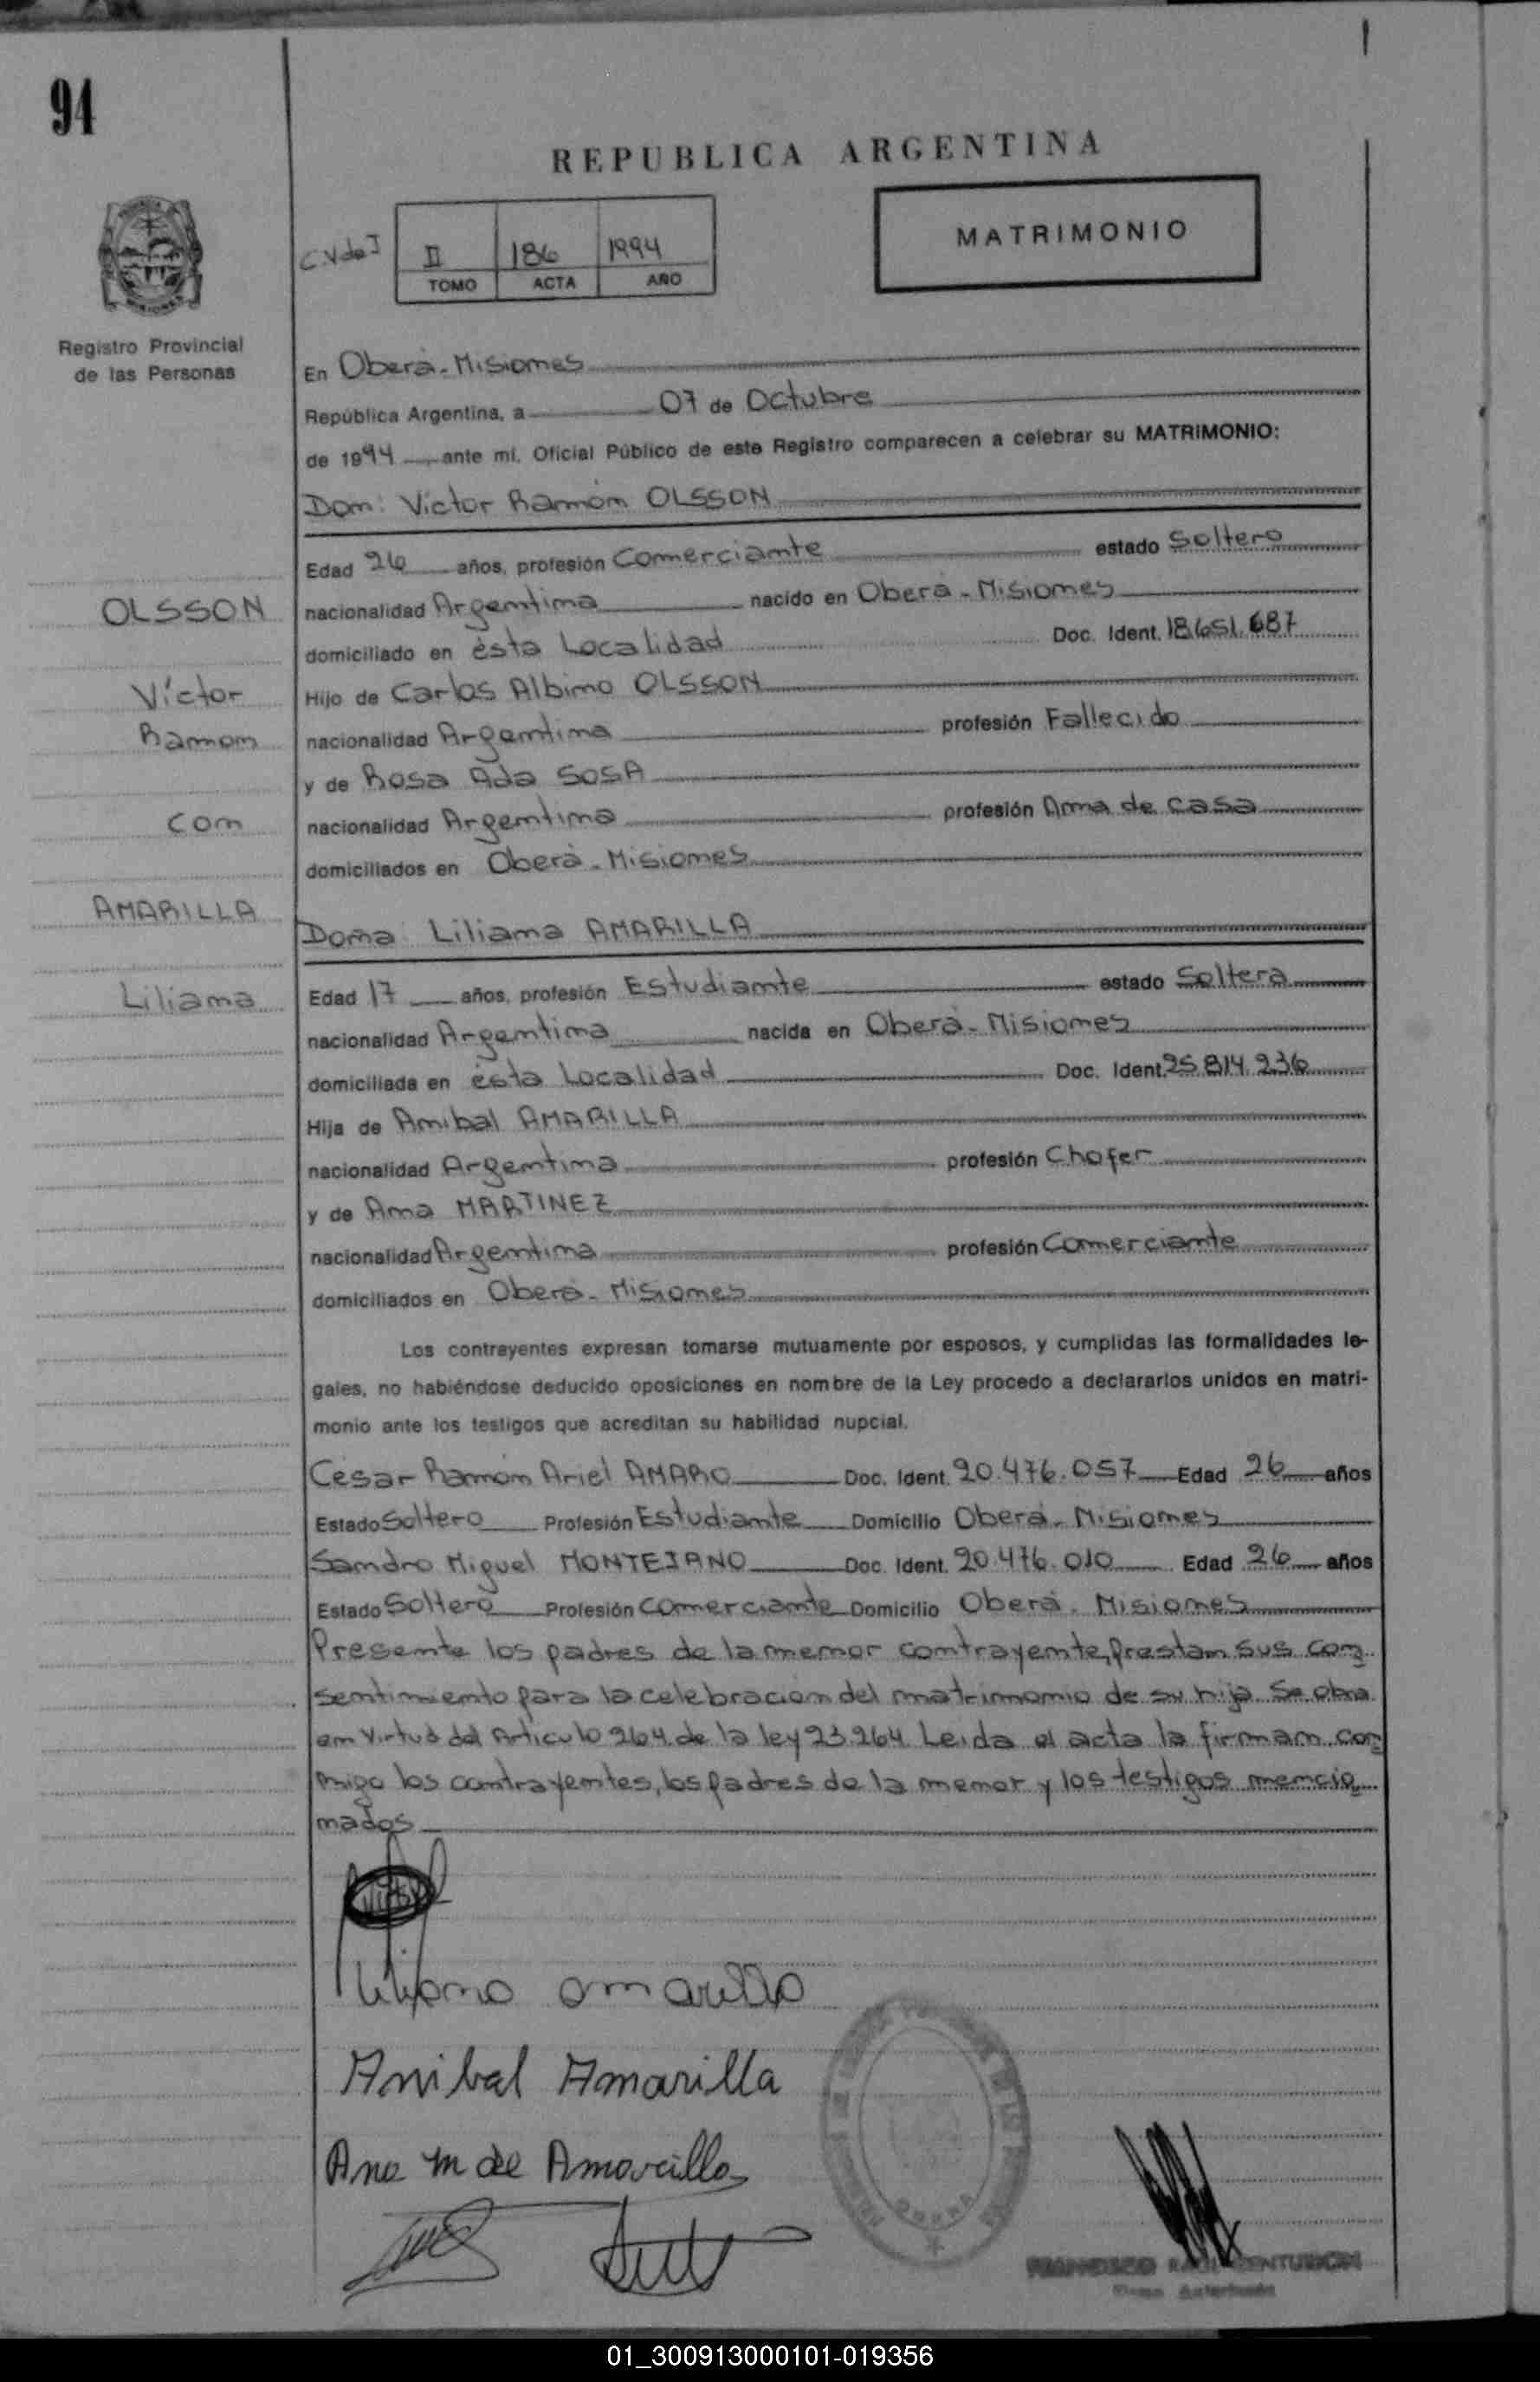 94
REPUBLICA ARGENTINA
C.V de J
II 186 1994
TOMO ACTA AÑO
MATRIMONIO
Registro Provincial
de las Personas
En Oberá - Misiones
República Argentina, a 07 de Octubre
de 1994 ante mí, Oficial Público de este Registro comparecen a celebrar su MATRIMONIO:
Don: Victor Ramón OLSSON
Edad 26 años, profesión Comerciante estado Soltero
OLSSON
nacionalidad Argentina nacido en Oberá - Misiones
domiciliado en ésta Localidad Doc. Ident. 18.651.687
Víctor
Hijo de Carlos Albino OLSSON
Ramon
nacionalidad Argentina profesión Fallecido
y de Rosa Ada SOSA
con
nacionalidad Argentina profesión Ama de casa
domiciliados en Oberá - Misiones
AMARILLA
Doña: Liliana AMARILLA
Liliana
Edad 17 años, profesión Estudiante estado Soltera
nacionalidad Argentina nacida en Oberá - Misiones
domiciliada en ésta Localidad Doc. Ident. 25.814.236
Hija de Anibal AMARILLA
nacionalidad Argentina profesión Chofer
y de Ana MARTINEZ
nacionalidad Argentina profesión Comerciante
domiciliados en Oberá - Misiones
Los contrayentes expresan tomarse mutuamente por esposos, y cumplidas las formalidades le-
gales, no habiéndose deducido oposiciones en nombre de la Ley procedo a declararlos unidos en matri-
monio ante los testigos que acreditan su habilidad nupcial.
César Ramón Ariel AMARO Doc. Ident. 20.476.057 Edad 26 años
Estado Soltero Profesión Estudiante Domicilio Oberá - Misiones
Sandro Miguel MONTEJANO Doc. Ident. 20.476.010 Edad 26 años
Estado Soltero Profesión Comerciante Domicilio Oberá - Misiones
Presente los padres de la menor contrayente, prestan sus con
sentimiento para la celebración del matrimonio de su hija. Se obra
en virtud del Articulo 264 de la ley 23.264 Leida el acta la firman con
migo los contrayentes, los padres de la menor y los testigos mencio
nados
Liliana Amarilla
Anibal Amarilla
Ana M de Amarilla
OBERA
FRANCISCO RAUL CENTURION
Firma Autorizada
01_300913000101-019356